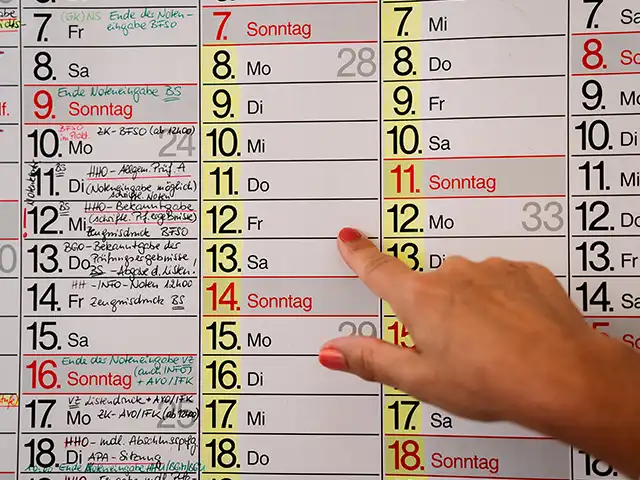 7. Fr (GK) NS Ende des Noten-
eingabe BFSO
8. Sa
9. Sonntag Ende Noteneingabe BS
10. Mo ZK-BFSO (ab 12h00)
24
11. Di HHO-Allgem. Prüf. A
(Noteneingabe möglich)
schriftl. Noten
12. Mi BS HHO-Bekanntgabe
(schriftl. Pf. ergebnisse)
Zeugnisdruck BFSO
13. Do BGO-Bekanntgabe der
Prüfungsergebnisse!
BS-Abgabe d. Listen!
14. Fr HH-INFO-Noten 12h00
Zeugnisdruck BS
15. Sa
16. Sonntag Ende des Noteneingabe VZ
(auch INFO)
+ AVO/IFK
17. Mo VZ Listendruck + AVO/IFK
ZK-AVO/IFK (ab 12h00)
25
18. Di HHO-mdl. Abschlusspfg.
APA-Sitzung
Ende Noteneingabe
7. Sonntag
8. Mo 28
9. Di
10. Mi
11. Do
12. Fr
13. Sa
14. Sonntag
15. Mo 29
16. Di
17. Mi
18. Do
7. Mi
8. Do
9. Fr
10. Sa
11. Sonntag
12. Mo 33
13. Di
15
17. Sa
18. Sonntag
7. Sa
8. So
9. Mo
10. Di
11. Mi
12. Do
13. Fr
14. Sa